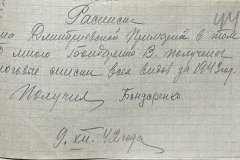 Расписка 44
на Дмитриевной Гримодий в том
что мною Бондаренко В. получены
налоговые списки всех видов за 1943 год.
Получил Бондаренко
9. XII. 42 года